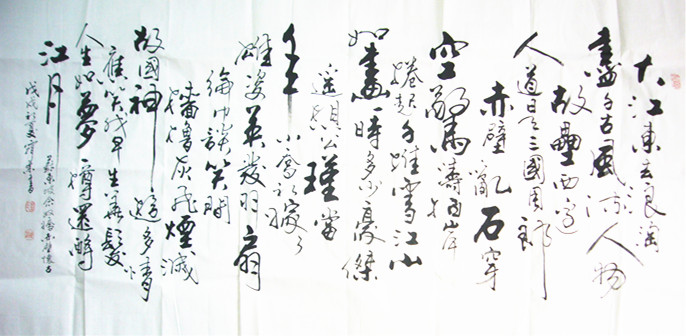 大江東去浪淘
盡千古風流人物
故壘西邊
人道是三國周郎
赤壁亂石穿
空驚濤拍岸
捲起千堆雪江山
如畫一時多少豪傑
遥想公瑾當
年小喬初嫁了
雄姿英发羽扇
綸巾談笑間
檣櫓灰飛煙滅
故國神遊多情
應笑我早生華髮
人生如夢樽還酹
江月
蘇東坡念奴嬌赤壁懷古
戊戌初夏書